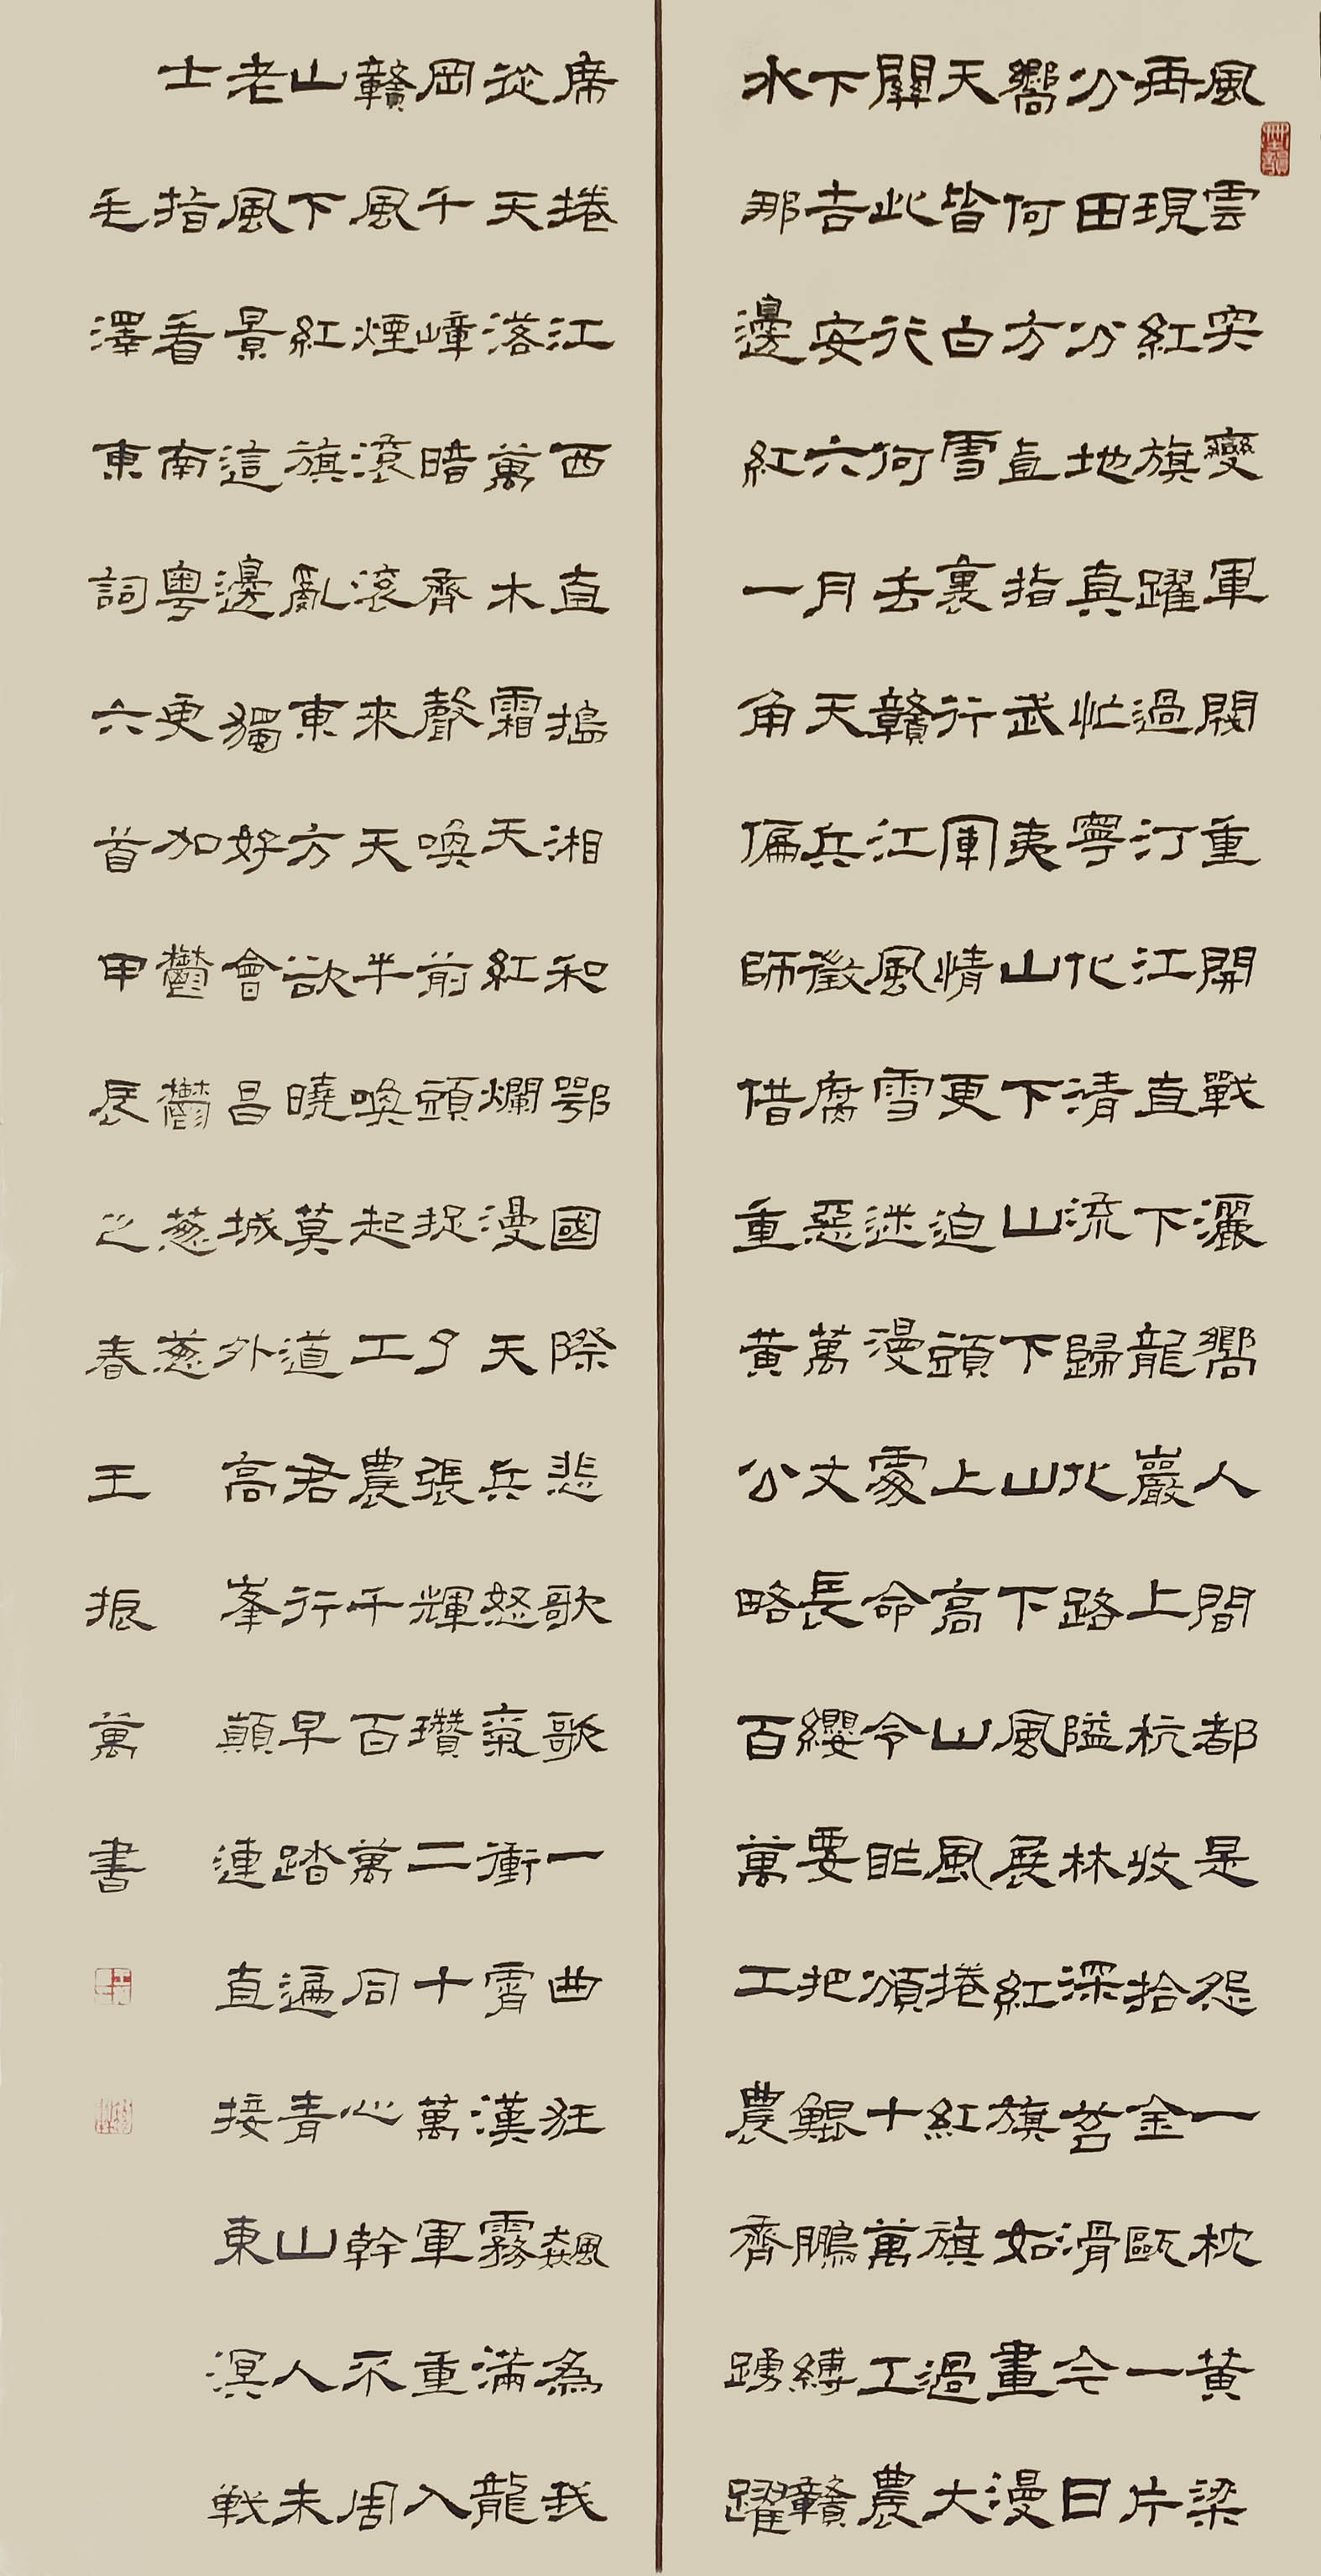 風雲突變軍閥重開戰灑嚮人間都是怨一枕黃梁
再現紅旗躍過汀江直下龍巖上杭收拾金甌一片
分田分地真忙寧化清流歸化路隘林深苔滑今日
嚮何方直指武夷山下山下山下風展紅旗如畫漫
天皆白雪裏行軍情更迫頭上高山風捲紅旗過大
關此行何去贛江風雪迷漫處命令昨頒十萬工農
下吉安六月天兵徵腐惡萬丈長纓要把鯤鵬縛贛
水那邊紅一角偏師借重黃公略百萬工農齊踴躍
席捲江西直搗湘和鄂國際悲歌歌一曲狂飆為我
從天落萬木霜天紅爛漫天兵怒氣衝霄漢霧滿龍
岡千嶂暗齊聲喚前頭捉了張輝瓚二十萬軍重入
贛風煙滾滾來天半喚起工農千百萬同心幹不周
山下紅旗亂東方欲曉莫道君行早踏遍青山人未
老風景這邊獨好會昌城外高峯顛連直接東溟戰
士指看南粵更加鬱鬱葱葱
毛澤東詞六首甲辰之春王振萬書